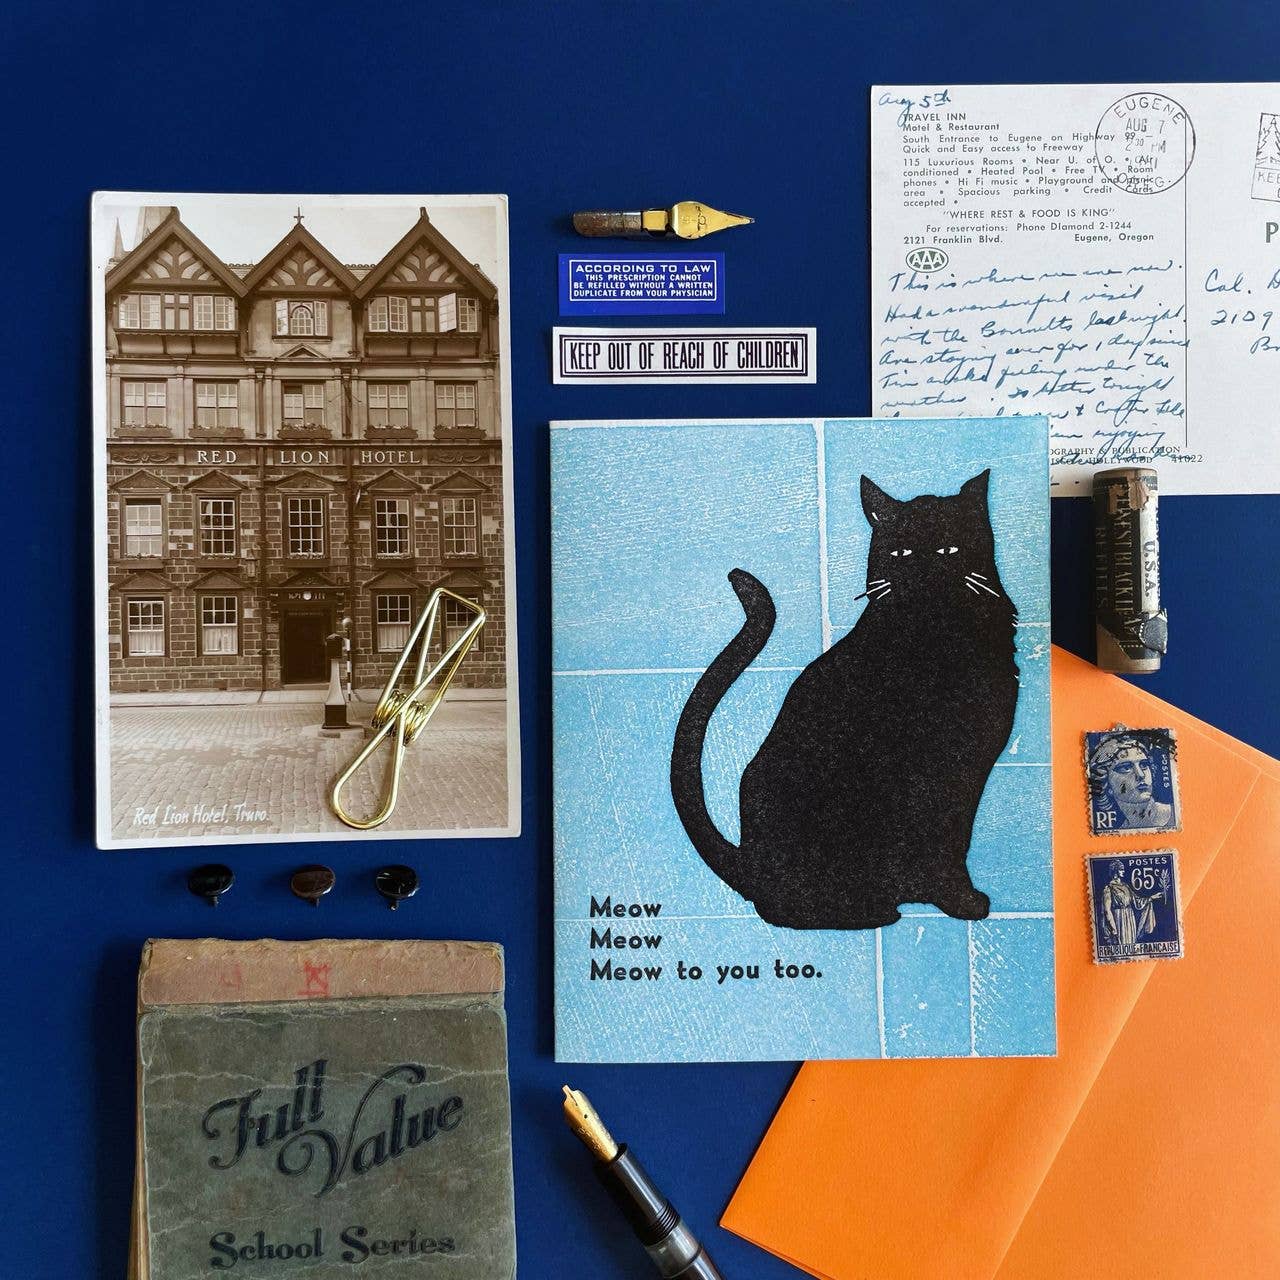 RED LION HOTEL
Red Lion Hotel, Truro.
ACCORDING TO LAW
THIS PRESCRIPTION CANNOT
BE REFILLED WITHOUT A WRITTEN
DUPLICATE FROM YOUR PHYSICIAN
KEEP OUT OF REACH OF CHILDREN
Aug 5th
TRAVEL INN
Motel & Restaurant
South Entrance to Eugene on Highway 99
Quick and Easy access to Freeway
115 Luxurious Rooms • Near U. of O. • Air
conditioned • Heated Pool • Free TV • Room
phones • Hi Fi music • Playground and picnic
area • Spacious parking • Credit cards
accepted •
"WHERE REST & FOOD IS KING"
For reservations: Phone DIamond 2-1244
2121 Franklin Blvd. Eugene, Oregon
AAA
EUGENE
AUG 7
2 30 PM
OREG.
KEE
P
This is where we are now.
Had a wonderful visit
with the last night
Are staying over for 1 day since
Tim feeling under the
weather. better tonight
enjoying
Cal.
2109
OGRAPHY & PUBLICATION
HOLLYWOOD 41022
Meow
Meow
Meow to you too.
U.S.A.
POSTES
RF
POSTES
65c
REPUBLIQUE FRANÇAISE
Full
Value
School Series